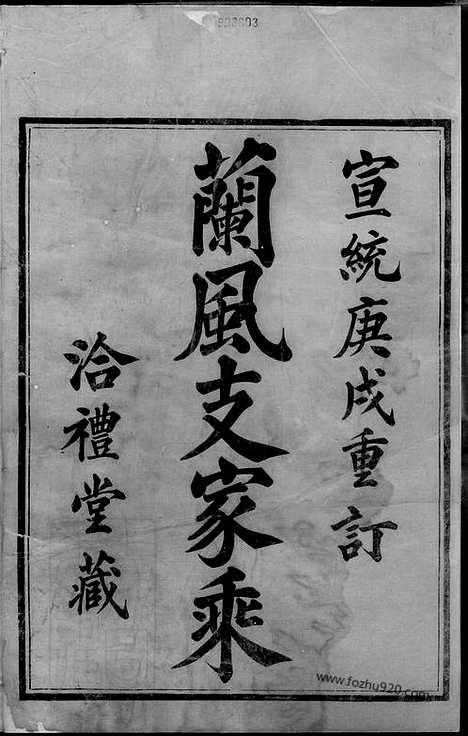 宣統庚戌重訂
蘭風支家乘
洽禮堂藏
www.fozhu920.com